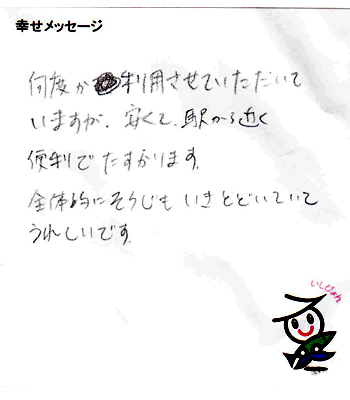 幸せメッセージ
何度か利用させていただいて
いますが、安くて、駅から近く
便利でたすかります。
全体的にそうじもいきとどいていて
うれしいです。
いしぴょん